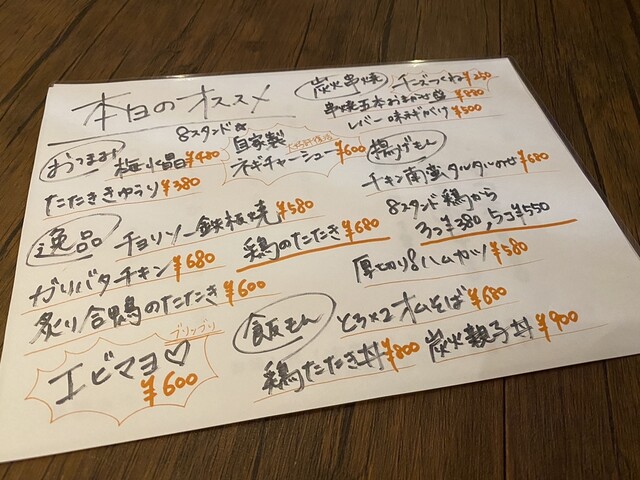 本日のオススメ
おつまみ
梅水晶 ¥480
たたききゅうり ¥380
8スタンド☆
自家製
ネギチャーシュー ¥600
逸品
チョリソー鉄板焼 ¥580
ガリバタチキン ¥680
鶏のたたき ¥680
炙り合鴨のたたき ¥600
プリップリ
エビマヨ♡
¥600
炭火串焼
チーズつくね ¥250
串焼五本おまかせ盛 ¥880
レバー味付け ¥500
揚げもん
チキン南蛮タルタルのせ ¥680
8スタンド鶏から
3コ¥380, 5コ¥550
厚切りハムカツ ¥580
飯もん
とろ×2オムそば ¥680
鶏たたき丼 ¥800
炭火親子丼 ¥900